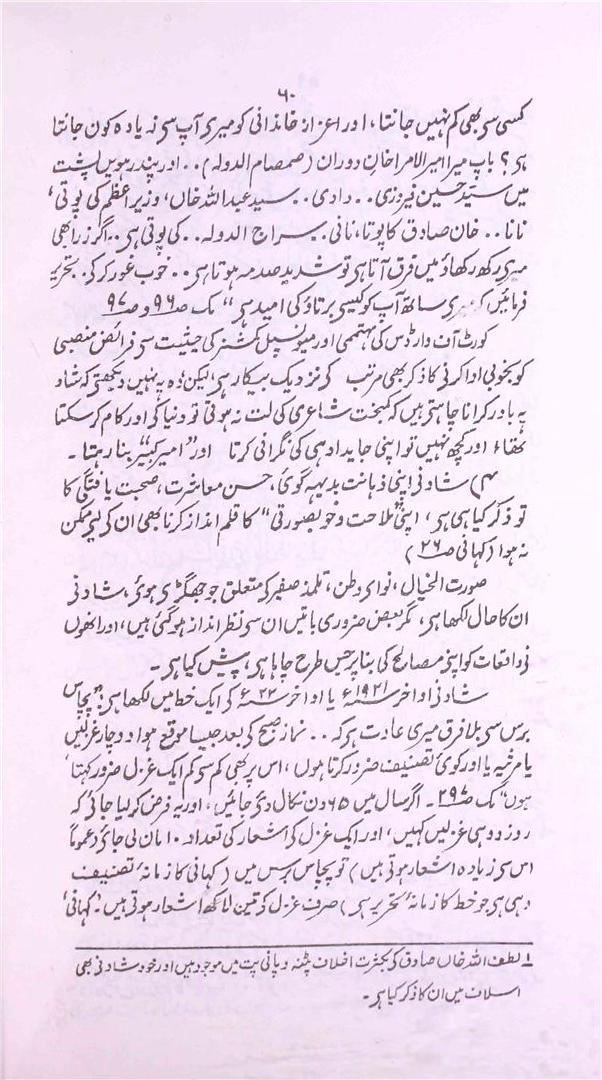 ۶۰
کسی سی بھی کم نہیں جانتا، اور اعزاز خاندانی کو میری آپ سی زیادہ کون جانتا
ہی؟ باپ میرا امیر الامرا خان دوران (صمصام الدولہ) ۰۰ اور پندرہویں پشت
میں سید حسین فیروزی ۰۰ دادی ۰۰ سید عبداللہ خاں، وزیر اعظم کی پوتی،
نانا ۰۰ خان صادق کا پوتا، نانی ۰۰ سراج الدولہ ۰۰ کی پوتی ہی ۰۰ اگر زرا بھی
میری رکھ رکھاؤ میں فرق آتا ہی تو شدید صدمہ ہوتا ہی ۰۰ خوب غور کر کی ۰۰ تحریر
فرمائیں کہ میری ساتھ آپ کو کیسی برتاؤ کی امید ہی" مک ص ۹۶ و ص ۹۷
کورٹ آف وارڈس کی مہتممی اور میونسپل کمشنر کی حیثیت سی فرائض منصبی
کو بخوبی ادا کرنی کا ذکر بھی مرتب کی نزدیک بیکار ہی، لیکن وہ یہ نہیں دیکھتی کہ شاد
یہ باور کرانا چاہتی ہیں کہ کمبخت شاعری کی لت نہ ہوتی تو دنیا کی اور کام کر سکتا
تھا، اور کچھ نہیں تو اپنی جایداد ہی کی نگرانی کرتا اور "امیر کبیر" بنا رہتا ۔
(۴) شاد نی اپنی ذہانت بدیہہ گوئ، حسن معاشرت، صحبت یافتگی کا
تو ذکر کیا ہی ہی، اپنی "ملاحت و خوبصورتی" کا قلم انداز کرنا بھی ان کی لیی ممکن
نہ ہوا (کہانی ص ۲۶)
صورت الخیال، نوای وطن، تلمذ صفیر کی متعلق جو جھگڑی ہوئ، شاد نی
ان کا حال لکھا ہی، مگر بعض ضروری باتیں ان سی نظر انداز ہو گئی ہیں، اور انھوں
نی واقعات کو اپنی مصالح کی بنا پر جس طرح چاہا ہی، پیش کیا ہی ۔
شاد نی اواخر ۱۹۲۱ء یا اواخر ۲۲ء کی ایک خط میں لکھا ہی: "پچاس
برس سی بلا فرق میری عادت ہی کہ ۰۰ نماز صبح کی بعد جیسا موقع ہوا، دو چار غزلیں
یا مرثیہ یا اور کوئ تصنیف ضرور کرتا ہوں، اس پر بھی کم سی کم ایک غزل ضرور کہتا
ہوں" مک ص ۲۹۷ ۔ اگر سال میں ۶۵ دن نکال دئ جائیں، اور یہ فرض کر لیا جائ کہ
روز دو ہی غزلیں کہیں، اور ایک غزل کی اشعار کی تعداد ۱۰ مان لی جائ (عموماً
اس سی زیادہ اشعار ہوتی ہیں) تو پچاس برس میں (کہانی کا زمانۂ تصنیف
وہی ہی جو خط کا زمانۂ تحریر ہی) صرف غزل کی تین لاکھ اشعار ہوتی ہیں ۔ 'کہانی'
۱ لطف اللہ خاں صادق کی بکثرت اخلاف پٹنہ و پانی پت میں موجود ہیں اور خود شاد نی بھی
اسلاف میں ان کا ذکر کیا ہی ۔